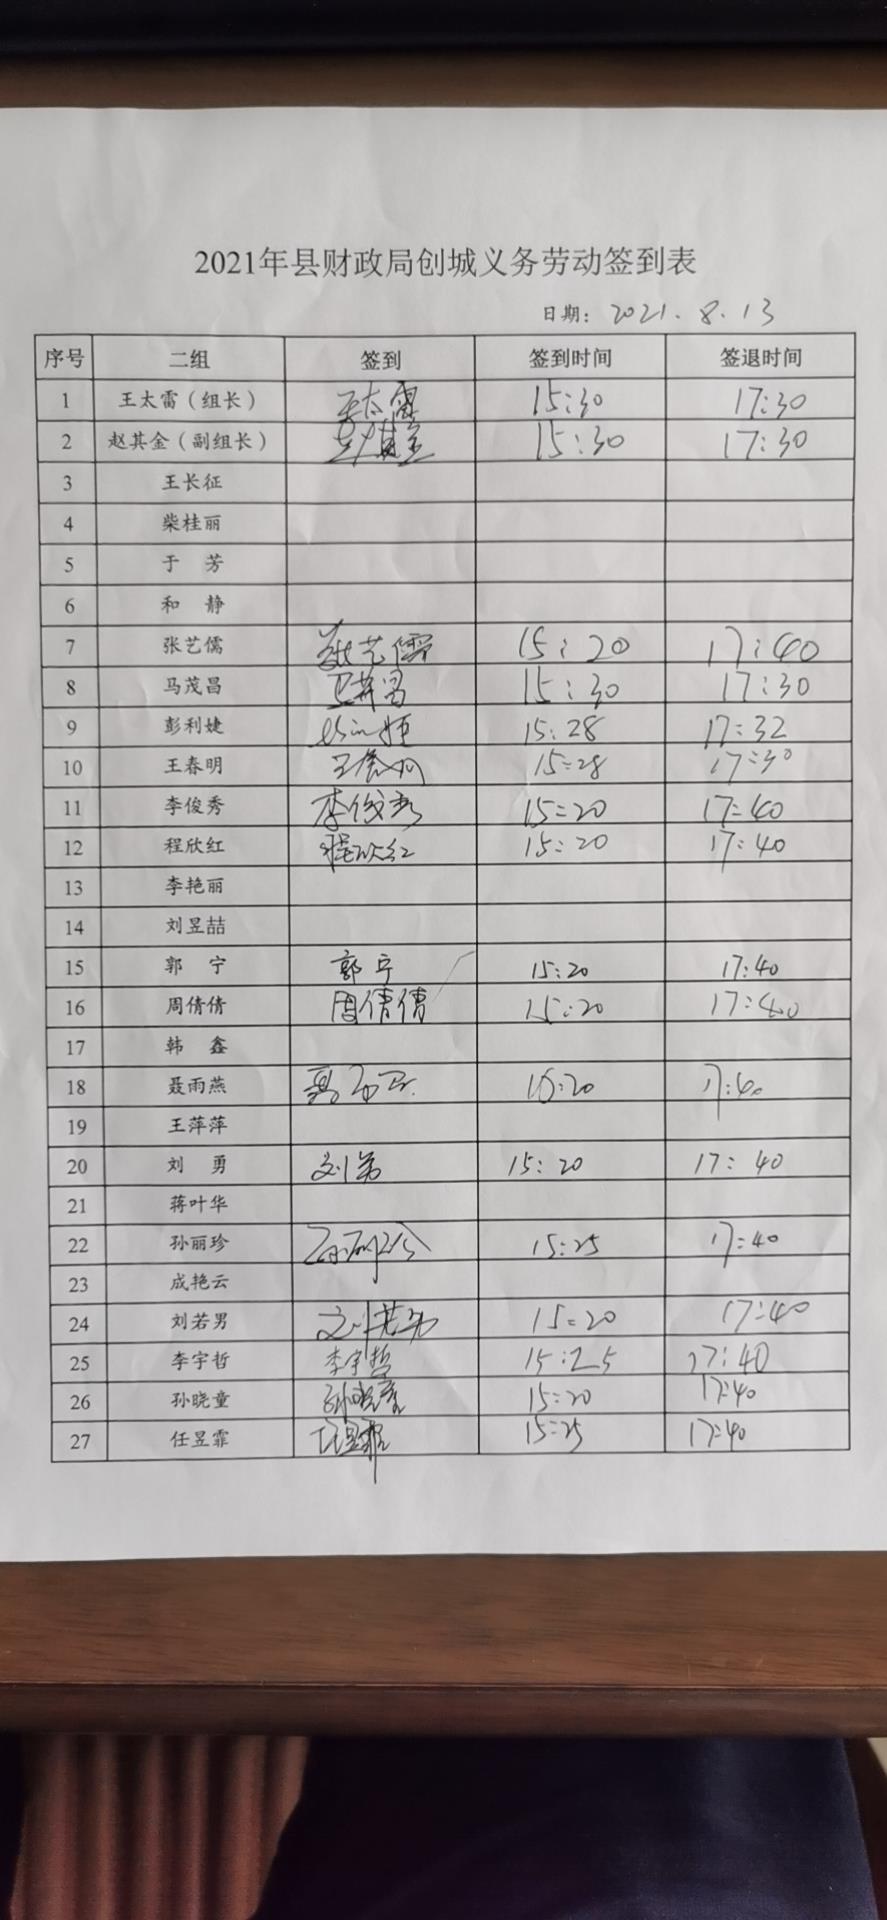 2021年县财政局创城义务劳动签到表
日期: 2021.8.13
序号 二组 签到 签到时间 签退时间
1 王太雷（组长） 王太雷 15:30 17:30
2 赵其金（副组长） 赵其金 15:30 17:30
3 王长征
4 柴桂丽
5 于 芳
6 和 静
7 张艺儒 张艺儒 15:20 17:40
8 马茂昌 马茂昌 15:30 17:30
9 彭利婕 15:28 17:32
10 王春明 王春明 15:28 17:30
11 李俊秀 李俊秀 15:20 17:40
12 程欣红 程欣红 15:20 17:40
13 李艳丽
14 刘昱喆
15 郭 宁 郭宁 15:20 17:40
16 周倩倩 周倩倩 15:20 17:40
17 韩 鑫
18 聂雨燕 聂雨燕 15:20 17:40
19 王萍萍
20 刘 勇 刘勇 15:20 17:40
21 蒋叶华
22 孙丽珍 孙丽珍 15:25 17:40
23 成艳云
24 刘若男 刘若男 15:20 17:40
25 李宇哲 李宇哲 15:25 17:40
26 孙晓童 孙晓童 15:20 17:40
27 任昱霏 任昱霏 15:25 17:40